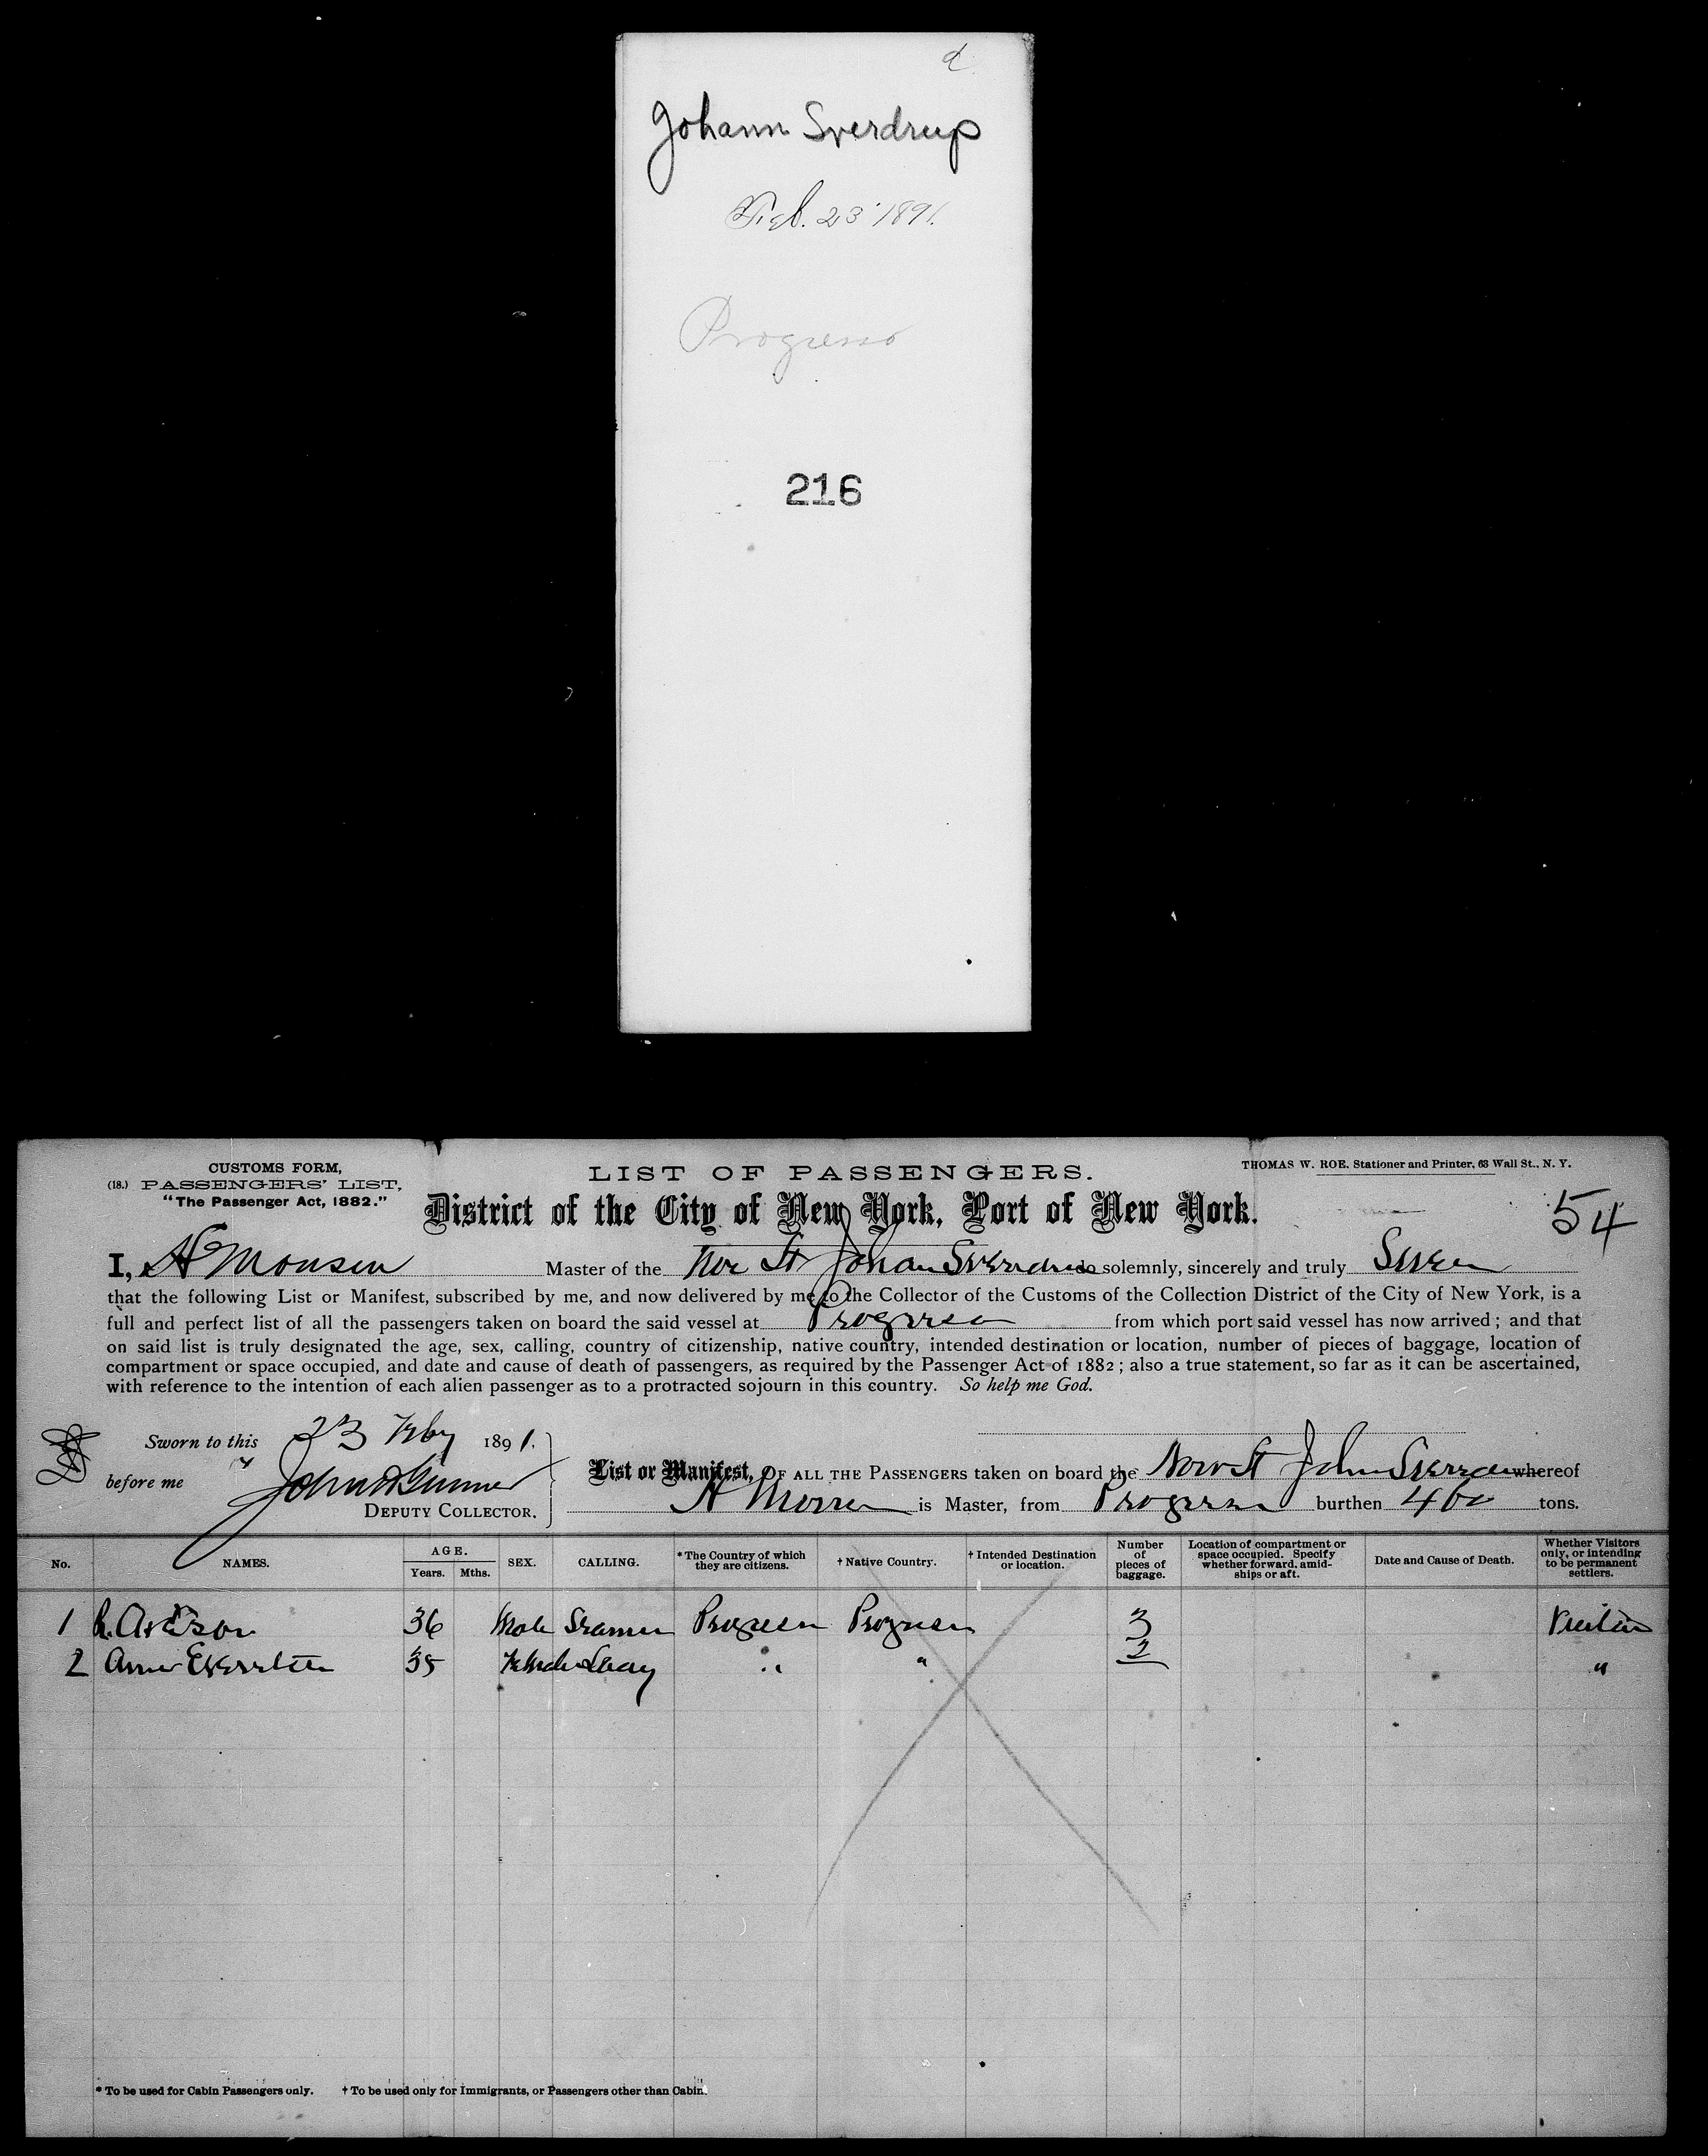 Johann Sverdrup
Feb. 23 1891.
Progreso
216
CUSTOMS FORM,
(18.) PASSENGERS' LIST,
"The Passenger Act, 1882."
LIST OF PASSENGERS.
THOMAS W. ROE. Stationer and Printer, 63 Wall St., N. Y.
District of the City of New York, Port of New York.
54
I, A Monsen Master of the Nor St Johan Sverdrup solemnly, sincerely and truly Swear
that the following List or Manifest, subscribed by me, and now delivered by me to the Collector of the Customs of the Collection District of the City of New York, is a
full and perfect list of all the passengers taken on board the said vessel at Progreso from which port said vessel has now arrived; and that
on said list is truly designated the age, sex, calling, country of citizenship, native country, intended destination or location, number of pieces of baggage, location of
compartment or space occupied, and date and cause of death of passengers, as required by the Passenger Act of 1882; also a true statement, so far as it can be ascertained,
with reference to the intention of each alien passenger as to a protracted sojourn in this country. So help me God.
Sworn to this 23 Feby 1891.
before me
DEPUTY COLLECTOR.
List or Manifest, OF ALL THE PASSENGERS taken on board the Nor St Johan whereof
is Master, from Progreso burthen tons.
No. NAMES. AGE. Years. Mths. SEX. CALLING. *The Country of which they are citizens. †Native Country. †Intended Destination or location. Number of pieces of baggage. Location of compartment or space occupied. Specify whether forward, amidships or aft. Date and Cause of Death. Whether Visitors only, or intending to be permanent settlers.
1 36 Male Progreso Progreso 3
2 35 Female " " 2 "
* To be used for Cabin Passengers only. † To be used only for Immigrants, or Passengers other than Cabin.